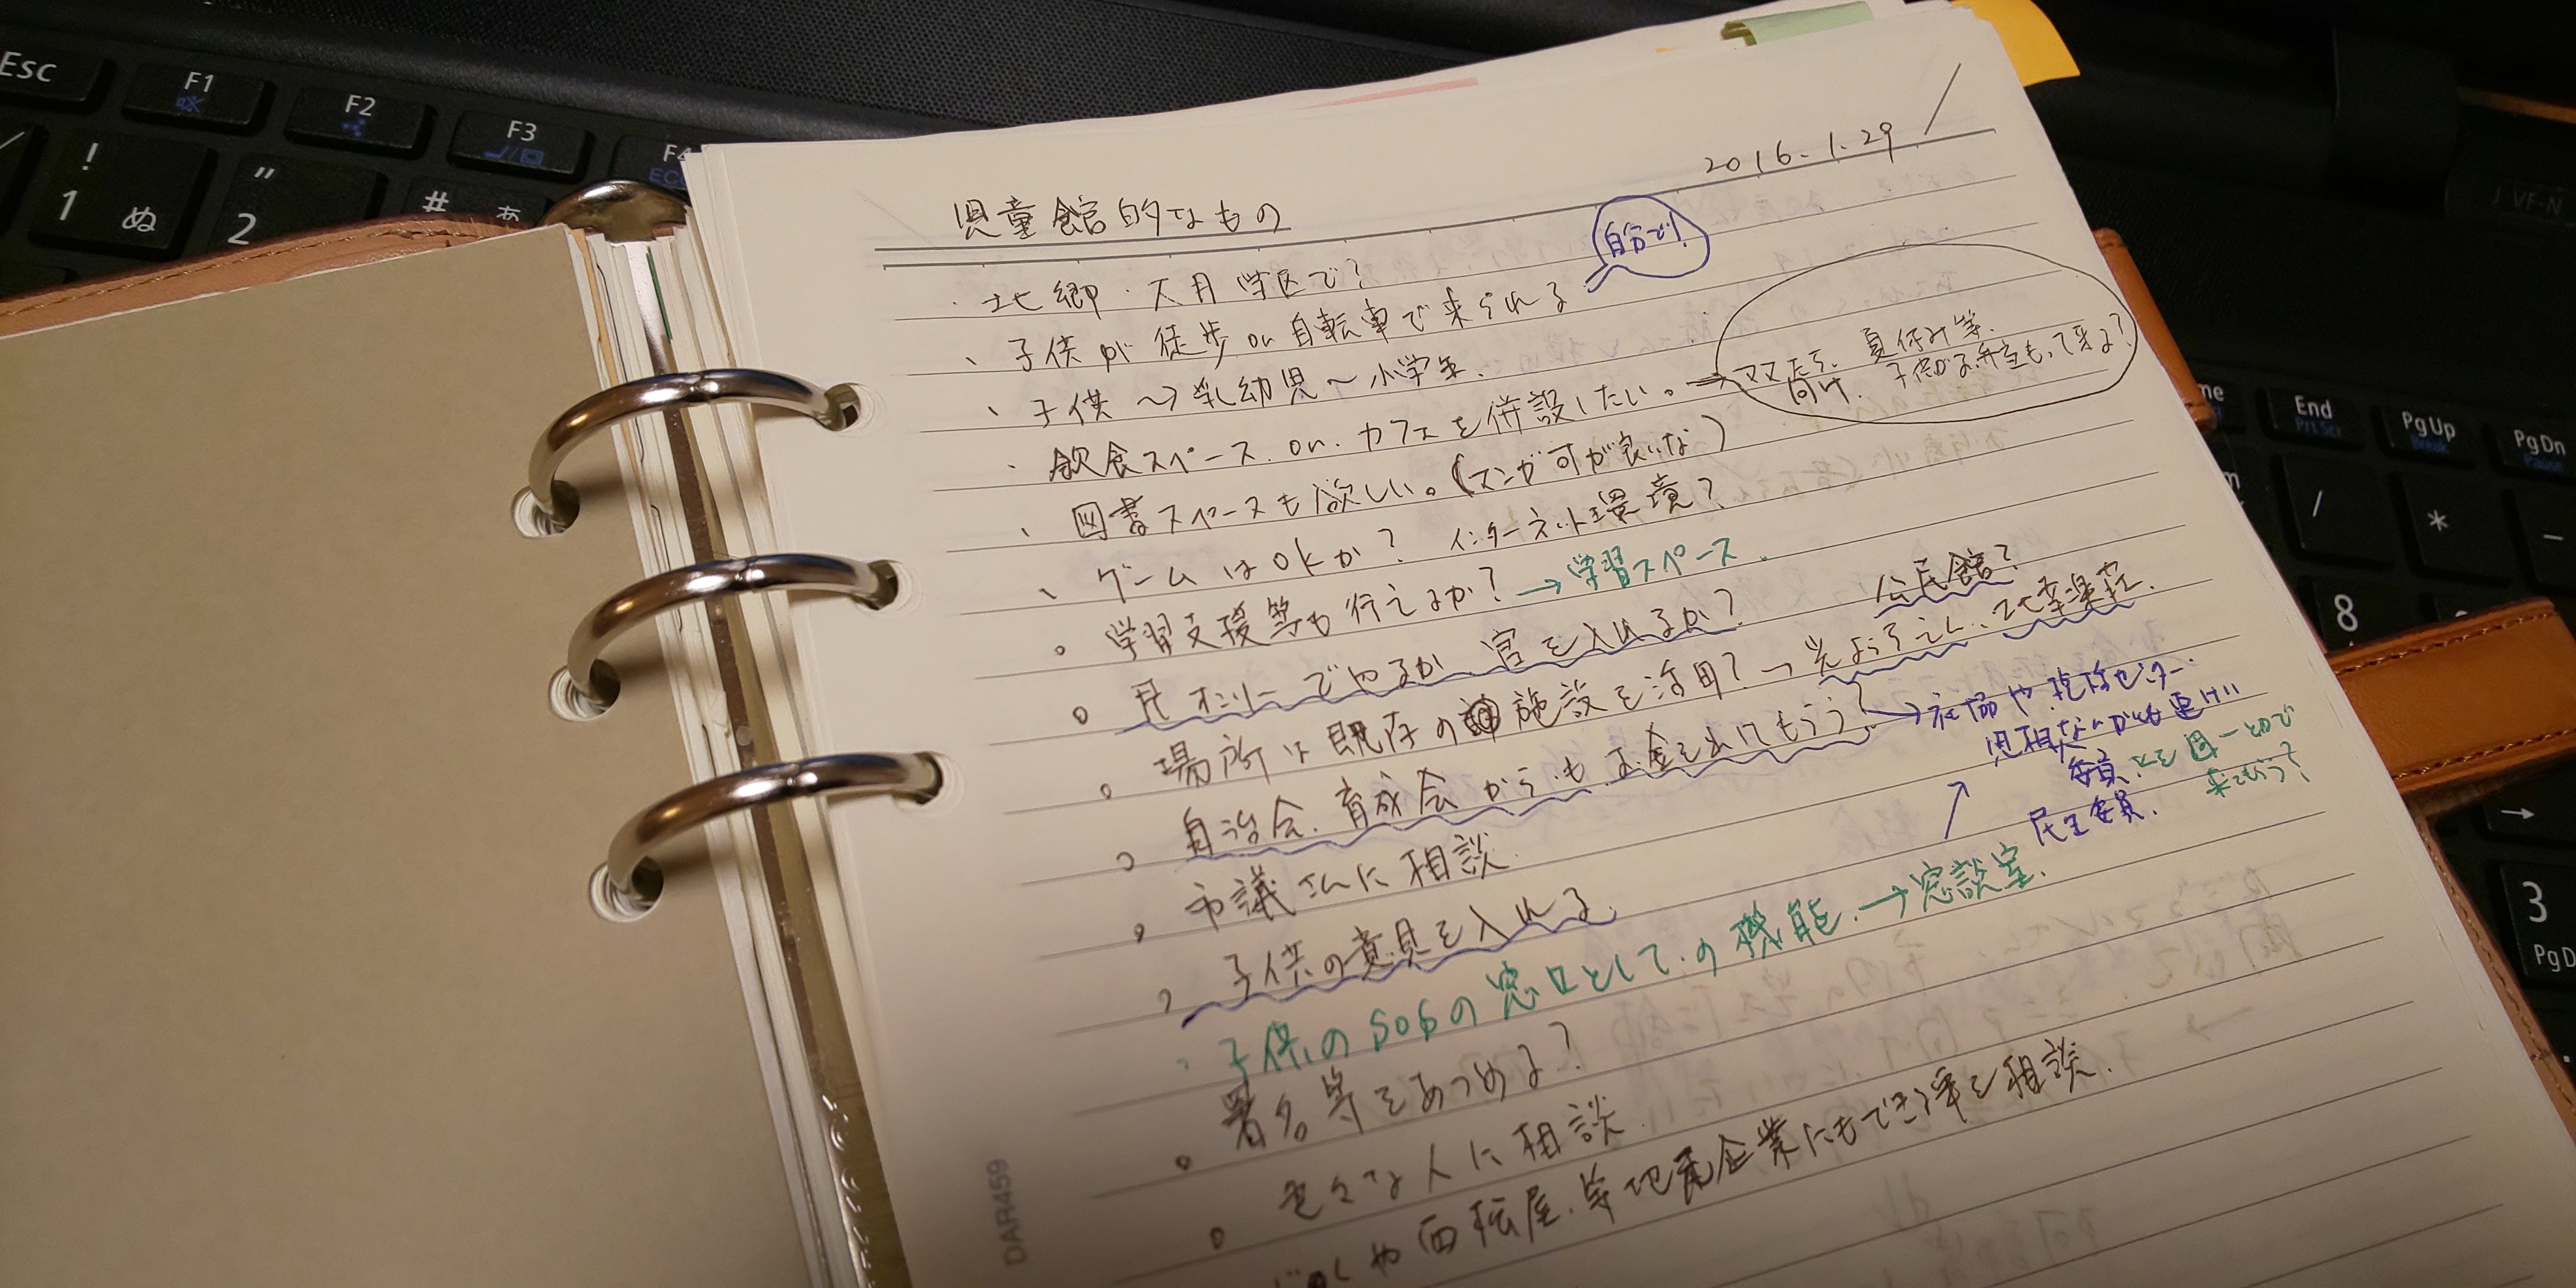 2016.1.29
児童館的なもの
・北郷・大月学区で?
・子供が徒歩or自転車で来られる
自分で!
・子供〜乳幼児〜小学生.
・飲食スペース or.カフェを併設したい。→
ママたち 向け.
夏休み等.
子供がお弁当もって来る?
・図書スペースも欲しい。(マンガ可が良いな)
・ゲームはOKか? インターネット環境?
・学習支援等も行えるか?→学習スペース.
・民オンリーでやるか、官を入れるか?
公民館?
・場所は既存の施設を活用?→光ようちえん、
・自治会.育成会からもお金を出してもらう?→社協や
児相なんかも
民生委員.
来てもらう?
・市議さんに相談.
・子供の意見を入れる.
・子供のSOSの窓口としての機能.→ 談室.
署名等をあつめる?
・色々な人に相談.
や西松屋.等地元企業にもできる事を相談.
DAR459
Esc
F1
F2
F3
F4
!
1 ぬ
"
2
#
あ
End
Prt Scr
PgUp
Break
PgDn
Pause
/
*
8
3